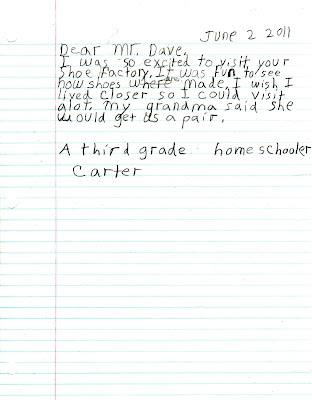 June 2 2011
Dear Mr. Dave,
I was so excited to visit your
Shoe Factory. It was fun to see
how shoes where made. I wish I
lived closer so I could visit
alot. my grandma said she
would get us a pair.
A third grade homeschooler
Carter